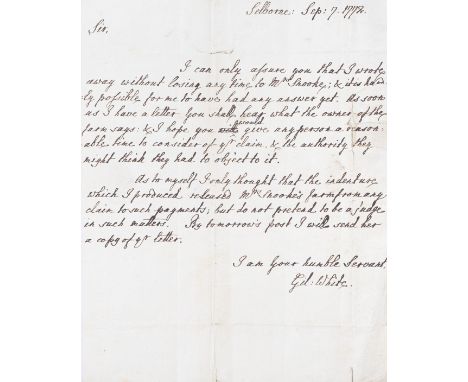 Selborne: Sep: 7. 1772.
Sir,
I can only assure you that I wrote
away without losing any time to Mrs Snooke; & it is hard-
ly possible for me to have had any answer yet. As soon
as I have a letter you shall hear what the owner of the
would
farm says: & I hope you will give any person a reason-
able time to consider of yr claim, & the authority they
might think they had to object to it.
As to myself I only thought that the indenture
which I produced released Mrs Snooke's farm from any
claim to such payments; but do not pretend to be a judge
in such matters. By tomorrow's post I will send her
a copy of yr letter.
I am Your humble Servant,
Gil: White.